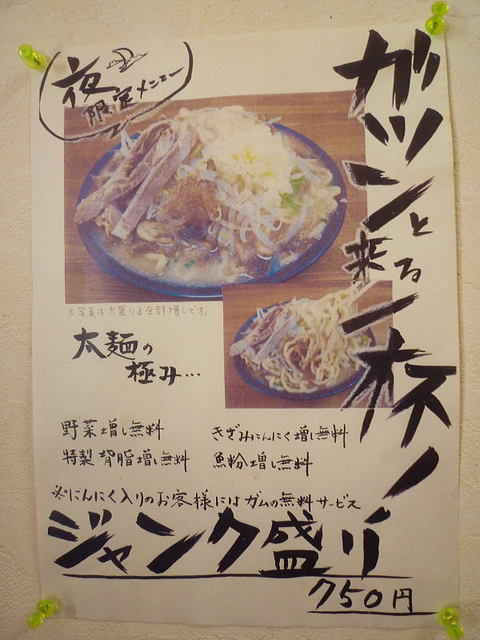 夜
限定メニュー
ガツンと来る一杯！
※写真は大盛り&全部増しです。
太麺の
極み…
野菜増し無料
きざみにんにく増し無料
特製背脂増し無料
魚粉増し無料
※にんにく入りのお客様にはガムの無料サービス
ジャンク盛り
750円